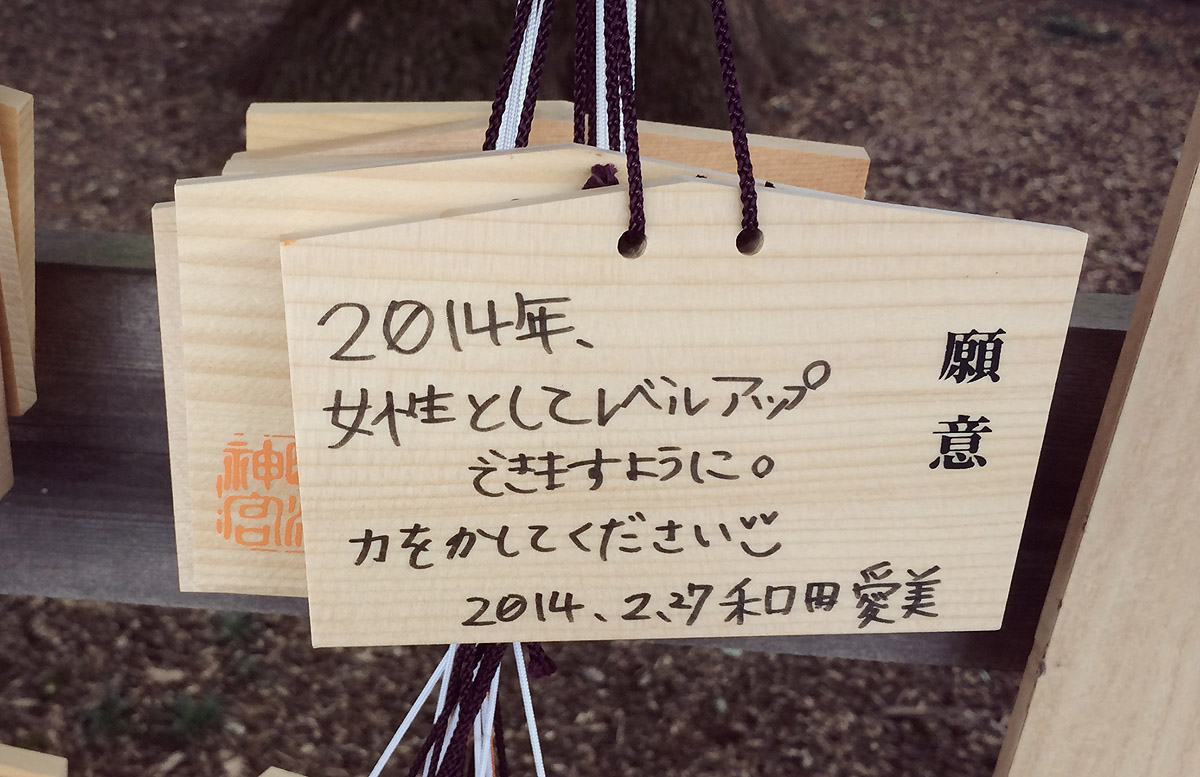 2014年、
女性としてレベルアップ
できますように。
力をかしてください
2014、2、27 和田愛美
願意
神宮